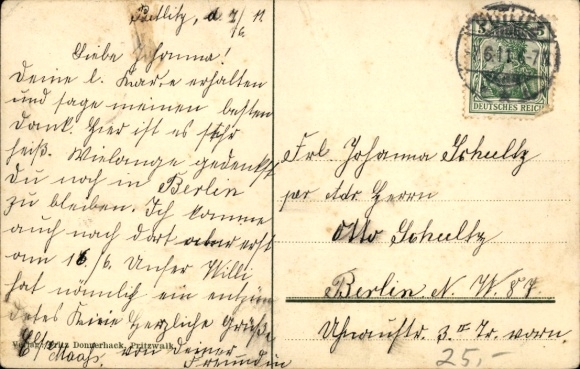 Putlitz, d. 7/6 11
Liebe Johanna!
Deine l. Karte erhalten
und sage meinen besten
Dank. Hier ist es sehr
heiß. Wielange gedenkst
Du noch in Berlin
zu bleiben. Ich komme
auch nach dort aber erst
am 16/6. Unser Willi
hat nämlich ein entzün
detes Knie Herzliche Grüße
von Deiner
Freundin
E. Maaß.
Verlag: Fritz Donnerhack, Pritzwalk
5 5
DEUTSCHES REICH
Frl. Johanna Schultz
per Adr. Herrn
Otto Schultz
Berlin N. W 87
3. II Tr. vorn.
25,-